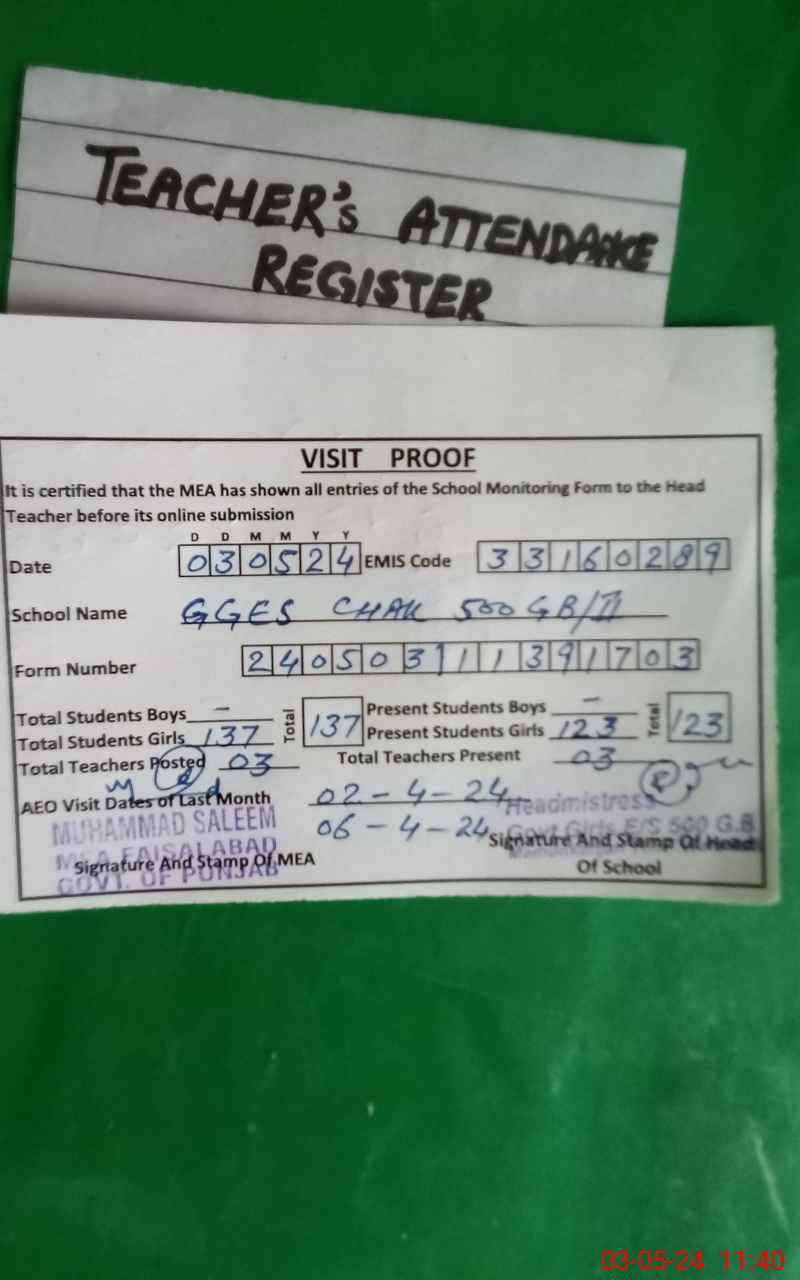 TEACHER'S ATTENDANCE
REGISTER
VISIT PROOF
It is certified that the MEA has shown all entries of the School Monitoring Form to the Head
Teacher before its online submission
D D M M Y Y
Date 030524 EMIS Code 33160289
School Name GGES CHAK 500 GB/II
Form Number 24050311391703
Total Students Boys - Total 137 Present Students Boys - Total 123
Total Students Girls 137 Present Students Girls 123
Total Teachers Posted 03 Total Teachers Present 03
AEO Visit Dates of Last Month 02-4-24
06-4-24
Headmistress
MUHAMMAD SALEEM
Govt Girls E/S 500 G.B
MEA FAISALABAD
GOVT. OF PUNJAB
Signature And Stamp Of MEA
Signature And Stamp Of Head
Of School
03-05-24 11:40